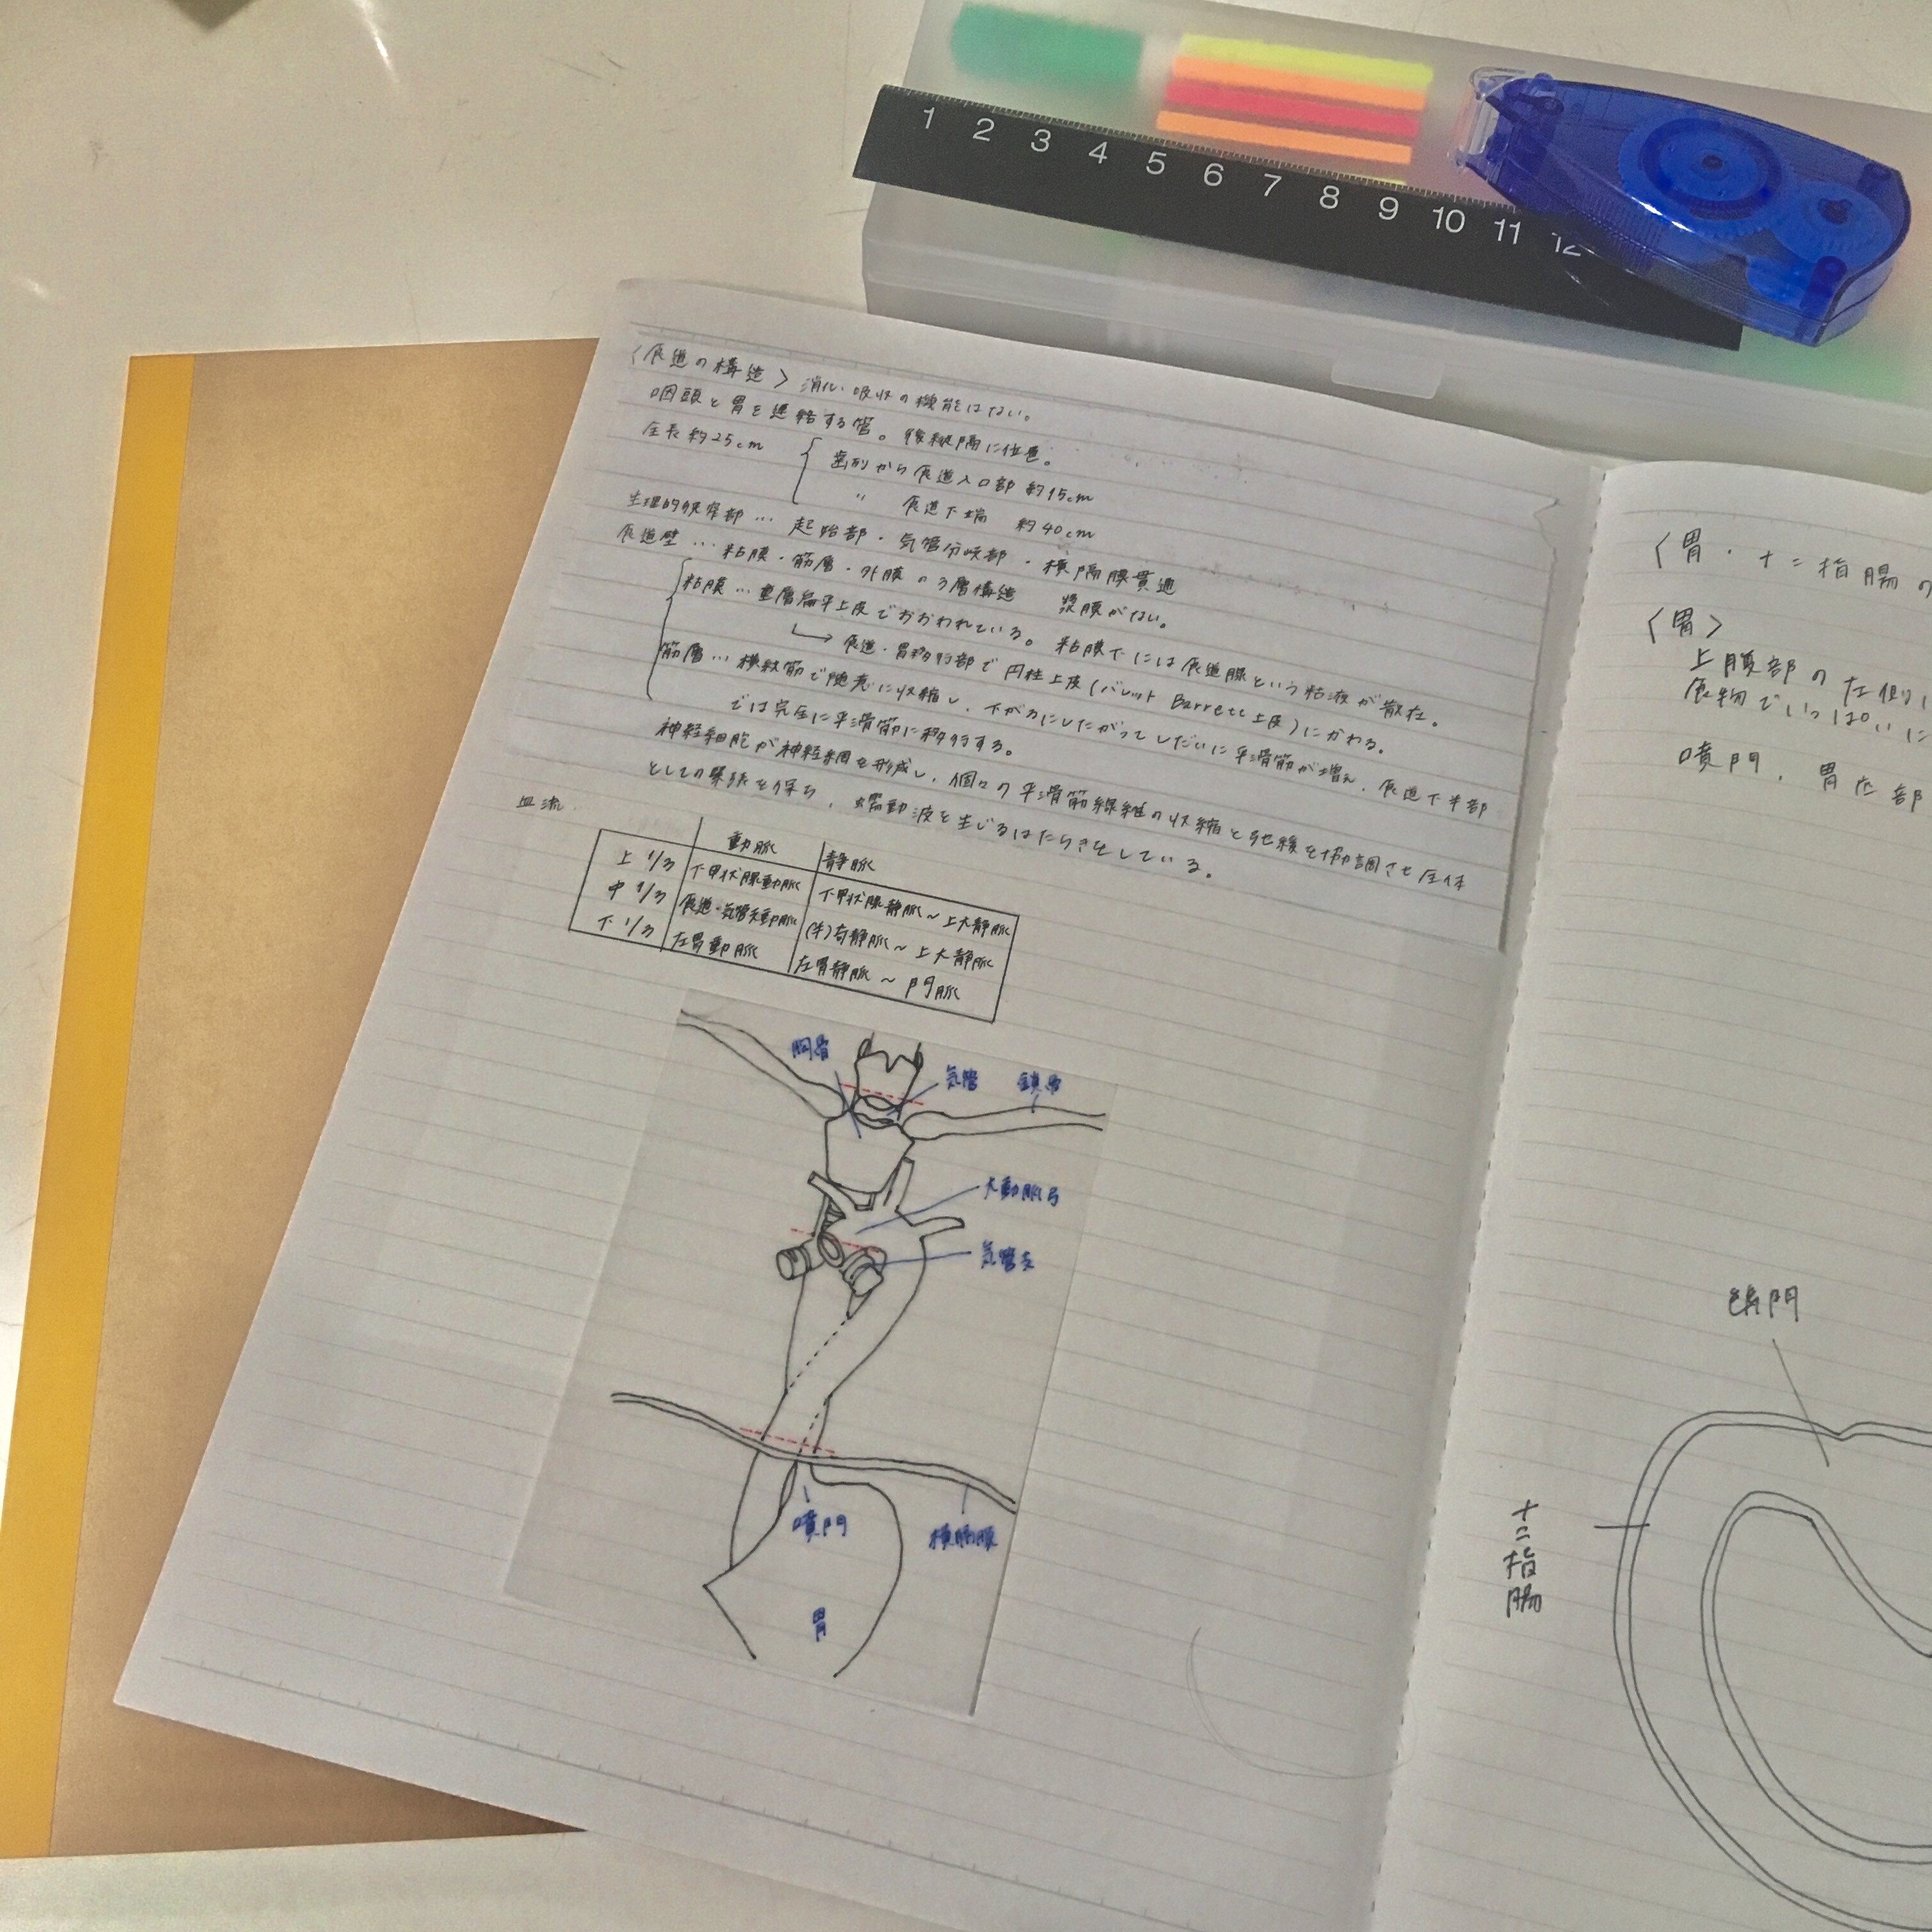 1 2 3 4 5 6 7 8 9 10 11 12
〈食道の構造〉 消化・吸収の機能はない。
咽頭と胃を連絡する管。後縦隔に位置。
全長約25cm
歯列から食道入口部 約15cm
〃 食道下端 約40cm
生理的狭窄部… 起始部・気管分岐部・横隔膜貫通
食道壁… 粘膜・筋層・外膜の3層構造 漿膜がない。
粘膜… 重層扁平上皮でおおわれている。粘膜下には食道腺という粘液が散在。
→ 食道・胃移行部で円柱上皮(バレット Barrett上皮)にかわる。
筋層… 横紋筋で随意に収縮し、下がるにしたがってしだいに平滑筋が増え、食道下半部
では完全に平滑筋に移行する。
神経細胞が神経網を形成し、個々の平滑筋線維の収縮と弛緩を協調させ全体
としての緊張を保ち、蠕動波を生じるはたらきをしている。
血流
動脈 静脈
上1/3 下甲状腺動脈 下甲状腺静脈〜上大静脈
中1/3 食道・気管支動脈 (半)奇静脈〜上大静脈
下1/3 左胃動脈 左胃静脈〜門脈
胸骨
気管
鎖骨
大動脈弓
気管支
噴門
横隔膜
胃
〈胃・十二指腸の
〈胃〉
上腹部の左側に
食物でいっぱいに
噴門、胃底部
幽門
十二指腸